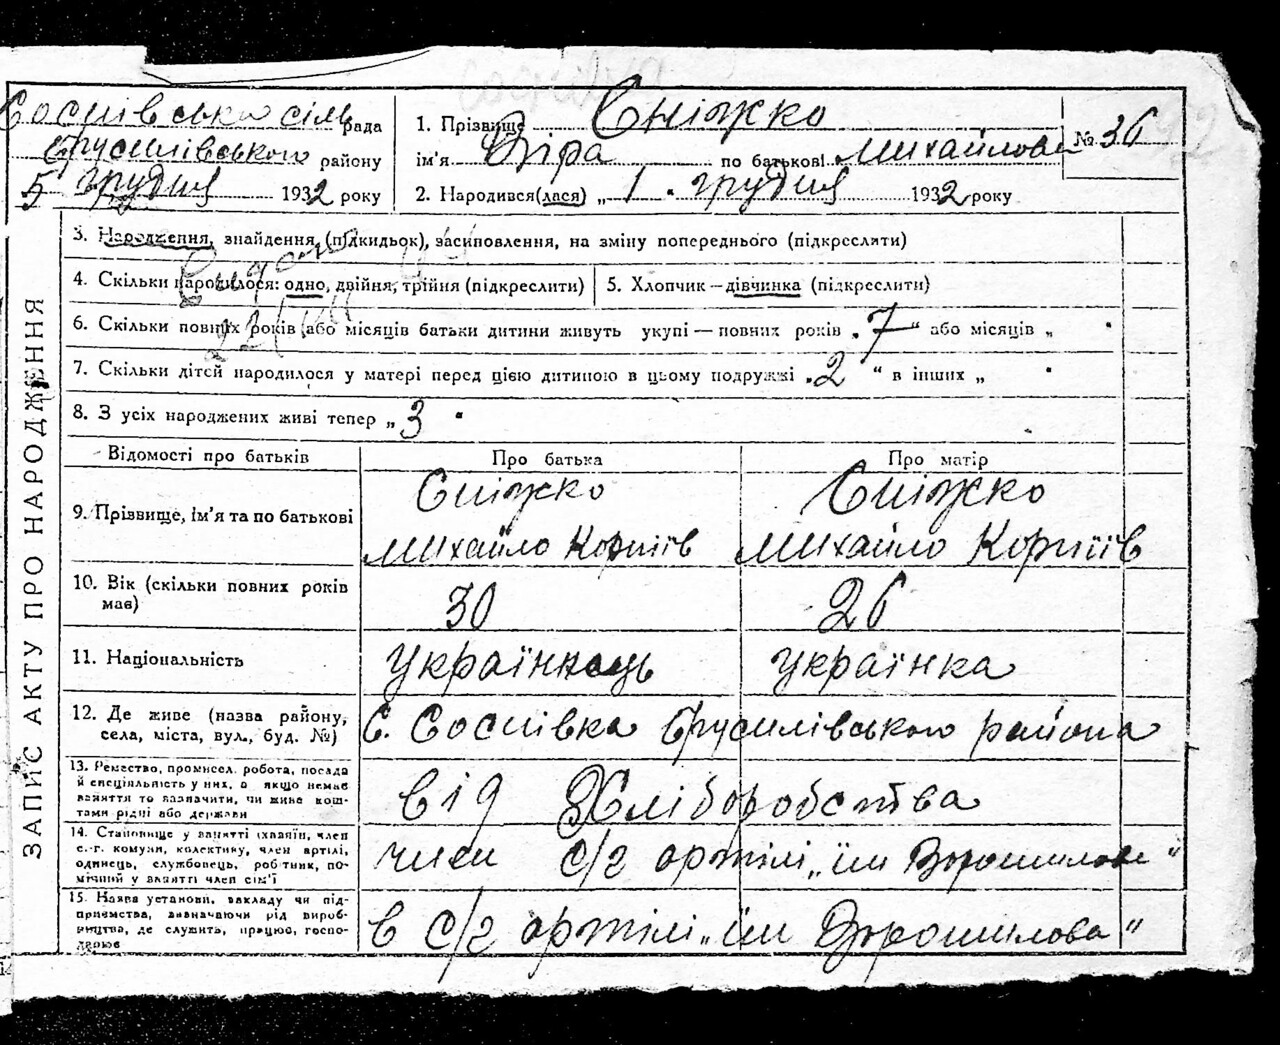 Соснівська сіль рада
Брусилівського району
5 грудня 1932 року
1. Прізвище Сніжко
ім'я Віра по батькові Михайлова
2. Народився(лася) „ 1 " грудня 1932 року
№ 36
ЗАПИС АКТУ ПРО НАРОДЖЕННЯ
3. Народження, знайдення, (підкидьок), засиновлення, на зміну попереднього (підкреслити)
4. Скільки народилося: одно, двійня, трійня (підкреслити)
5. Хлопчик — дівчинка (підкреслити)
6. Скільки повних років або місяців батьки дитини живуть укупі — повних років „ 7 " або місяців „ "
7. Скільки дітей народилося у матері перед цією дитиною в цьому подружжі „ 2 " в інших „ "
8. З усіх народжених живі тепер „ 3 "
Відомості про батьків
Про батька
Про матір
9. Прізвище, ім'я та по батькові
Сніжко
Михайло Корніїв
Сніжко
Михайло Корніїв
10. Вік (скільки повних років має)
30
26
11. Національність
Українець
Українка
12. Де живе (назва району, села, міста, вул., буд. №)
С. Соснівка Брусилівського района
13. Ремество, промисел, робота, посада й спеціяльність у них, а якщо немає заняття то зазначити, чи живе коштами рідні або держави
від Хліборобства
14. Становище у занятті (хазяїн, член с.-г. комуни, колективу, член артілі, одинець, службовець, робітник, помічний у занятті член сім'ї
член с/г артілі „ім Ворошилова"
15. Назва установи, закладу чи підприємства, зазначаючи рід виробництва, де служить, працює, господарює
в с/г артілі „ім Ворошилова"